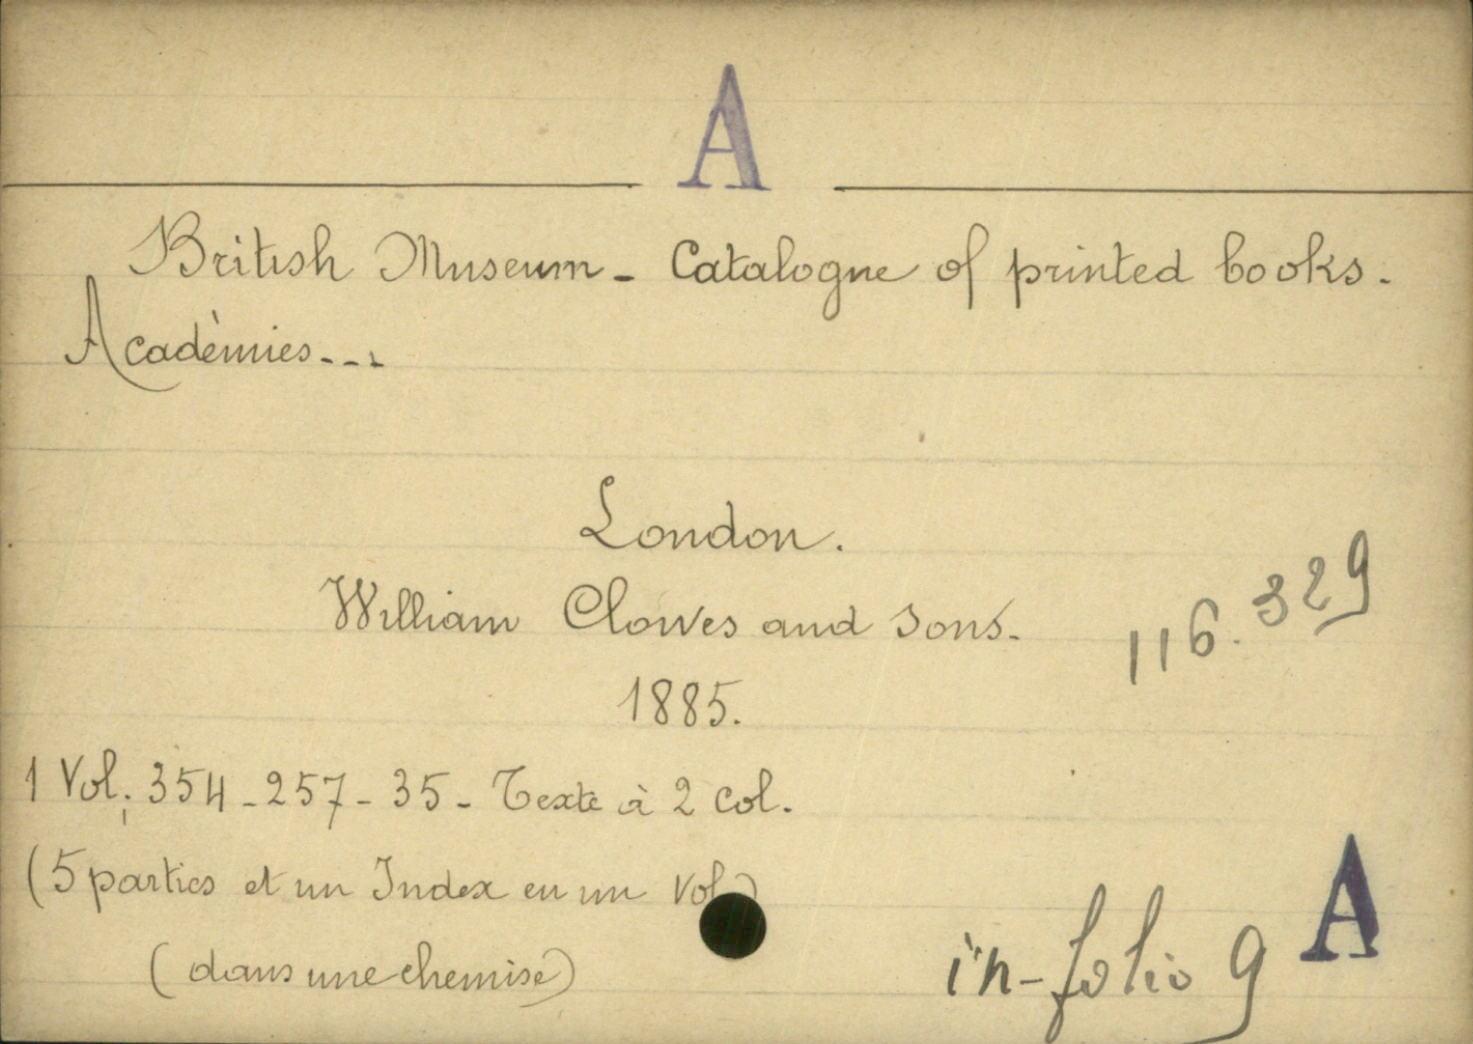 A
British Museum - Catalogue of printed books.
Académies...
London.
William Clowes and Sons.
116.329
1885.
1 Vol. 354-257-35- Texte à 2 col.
(5 parties et un Index en un Vol)
(dans une chemise)
in-folio 9 A